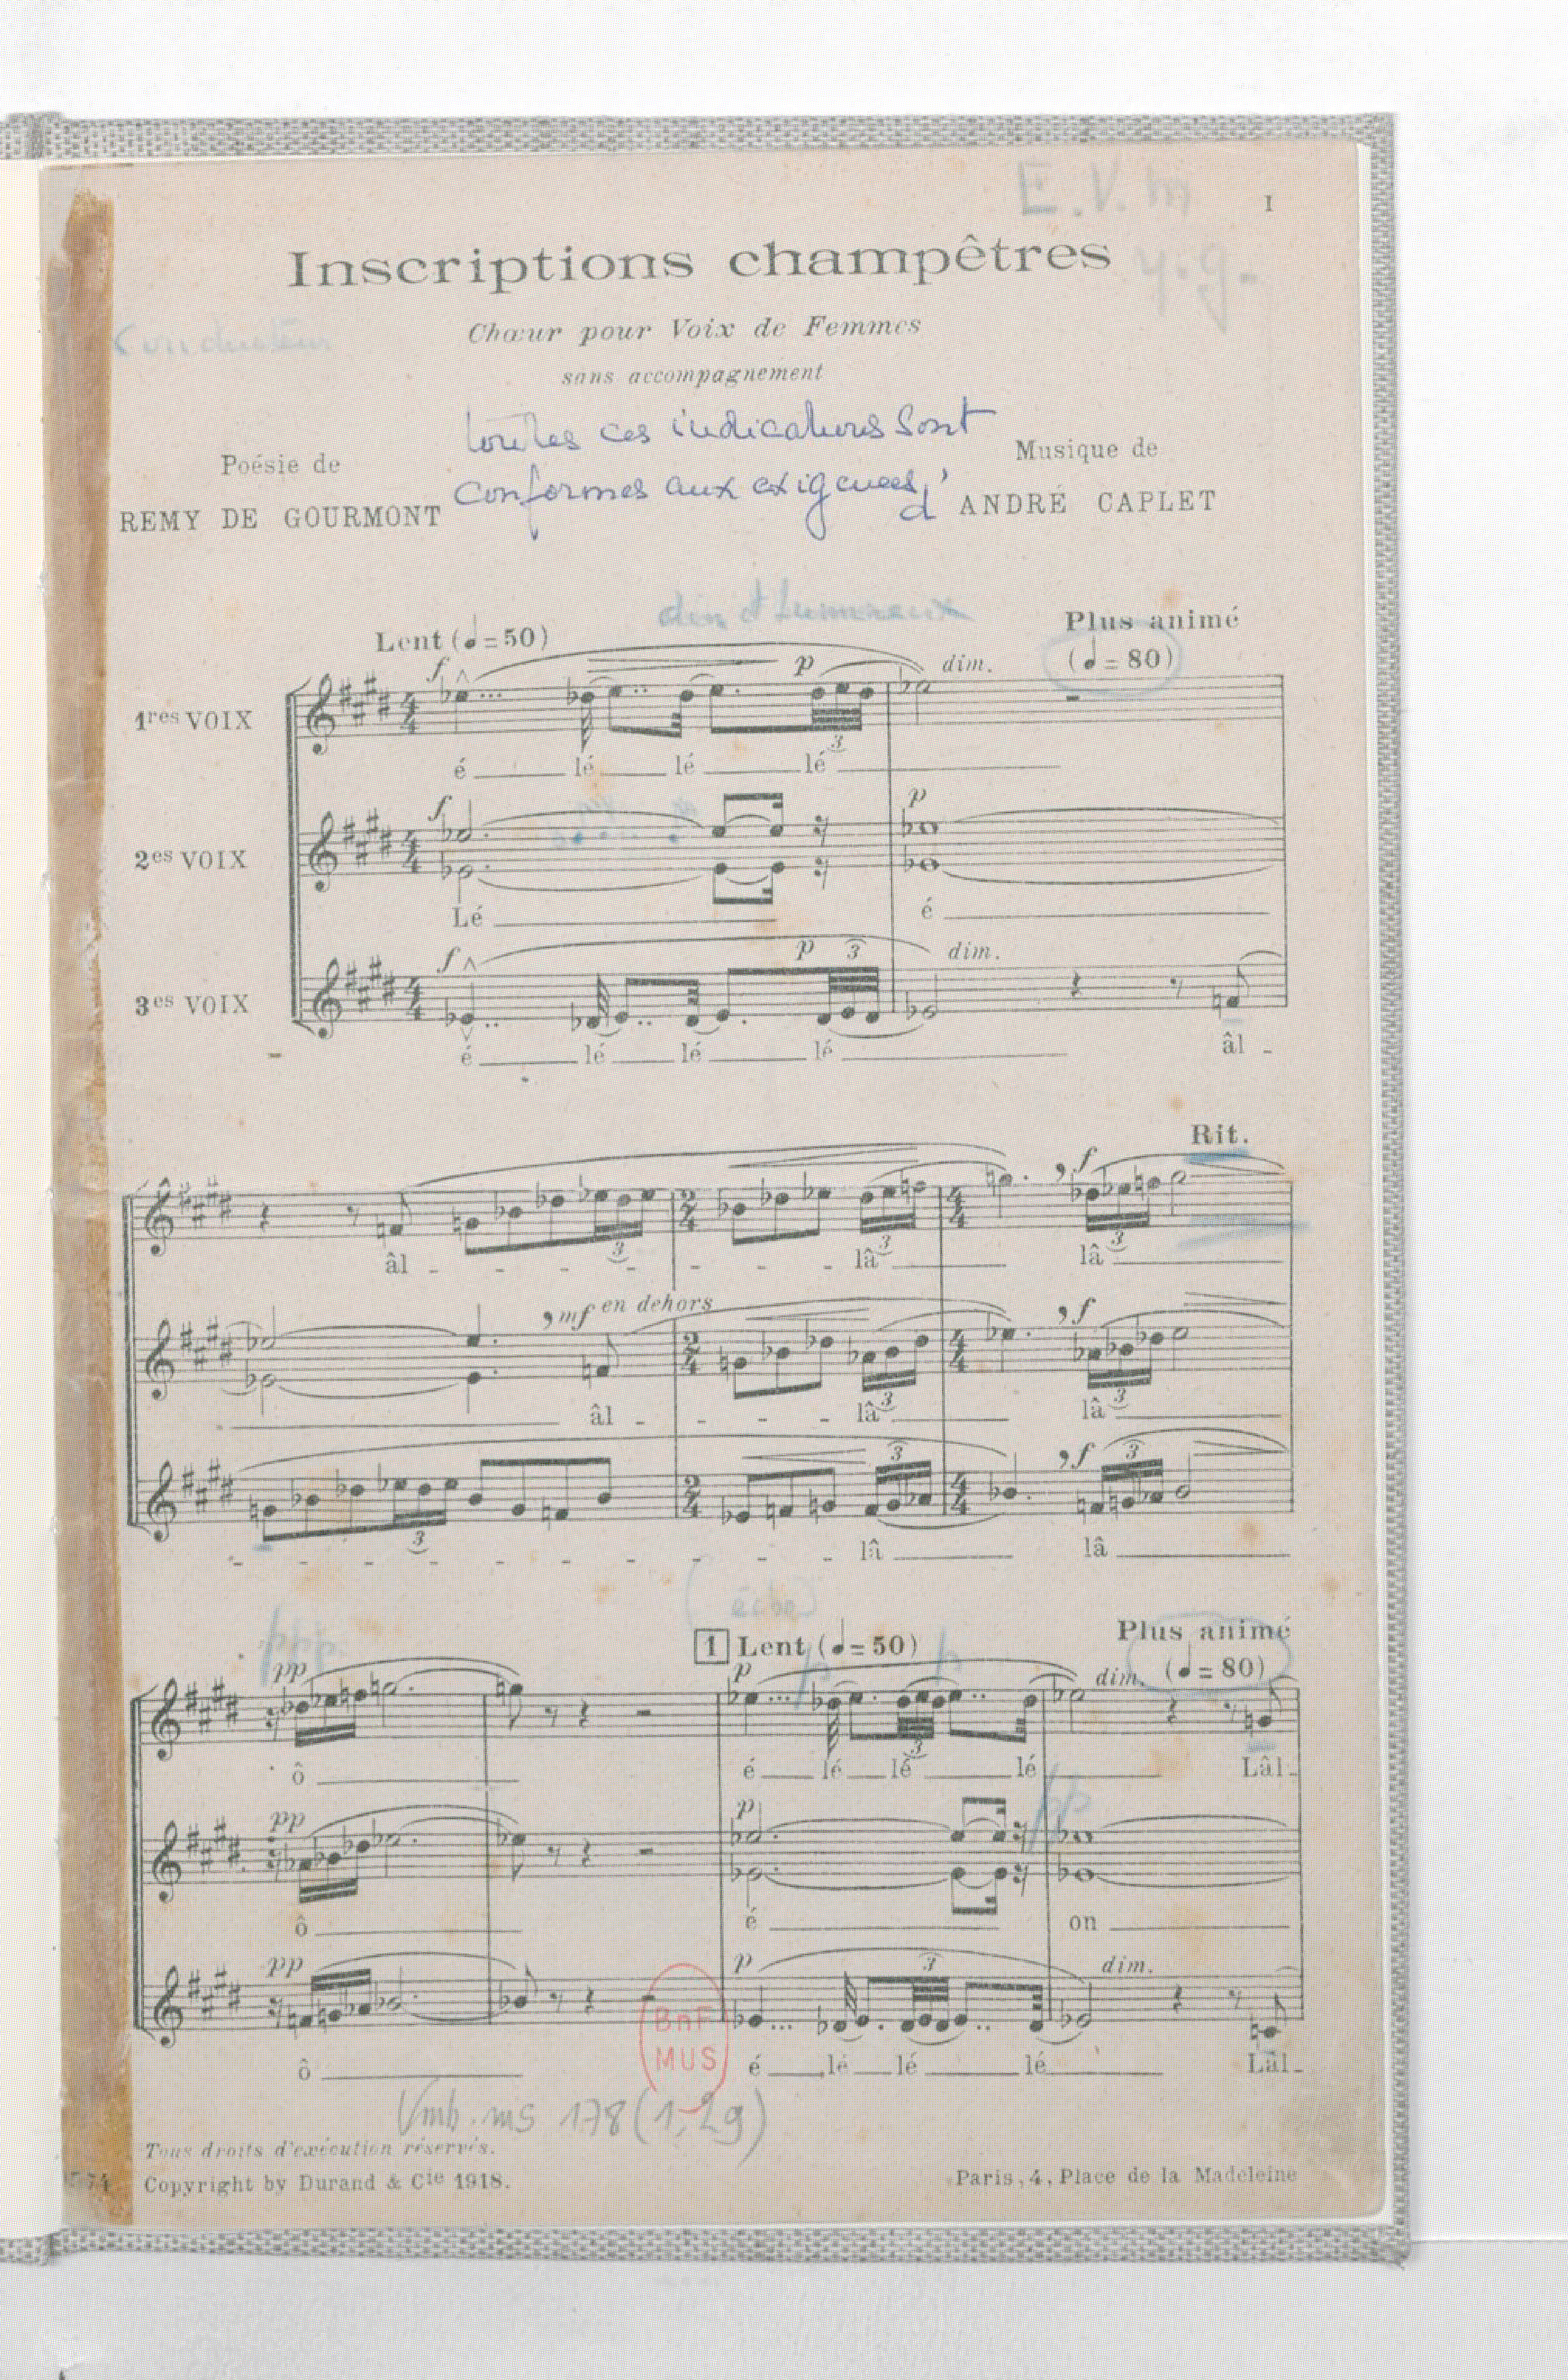 E.V.m
I
Inscriptions champêtres
y.g.
Conducteur
Chœur pour Voix de Femmes
sans accompagnement
toutes ces indications sont
Poésie de
Musique de
conformes aux exigences d'
REMY DE GOURMONT
ANDRÉ CAPLET
Lent (♩=50)
Plus animé
(♩=80)
f p dim.
1res VOIX
3
é lé lé lé
f p
2es VOIX
Lé é
f p 3 dim.
3es VOIX
é lé lé lé âl -
Rit.
f
3 3 3
âl - - - - - - - lâ lâ
, mf en dehors , f
3 3
âl - - - - lâ lâ
3 , f 3
3
- - - - - - - - - - lâ lâ
1 Lent (♩=50)
Plus animé
ppp
pp p dim. (♩=80)
3
ô é lé lé lé Lâl-
pp p pp
ô é on
pp p 3 dim.
BnF
MUS
ô é lé lé lé Lâl-
Vmb. ms 178 (1,29)
Tous droits d'exécution réservés.
Copyright by Durand & Cie 1918.
Paris, 4, Place de la Madeleine